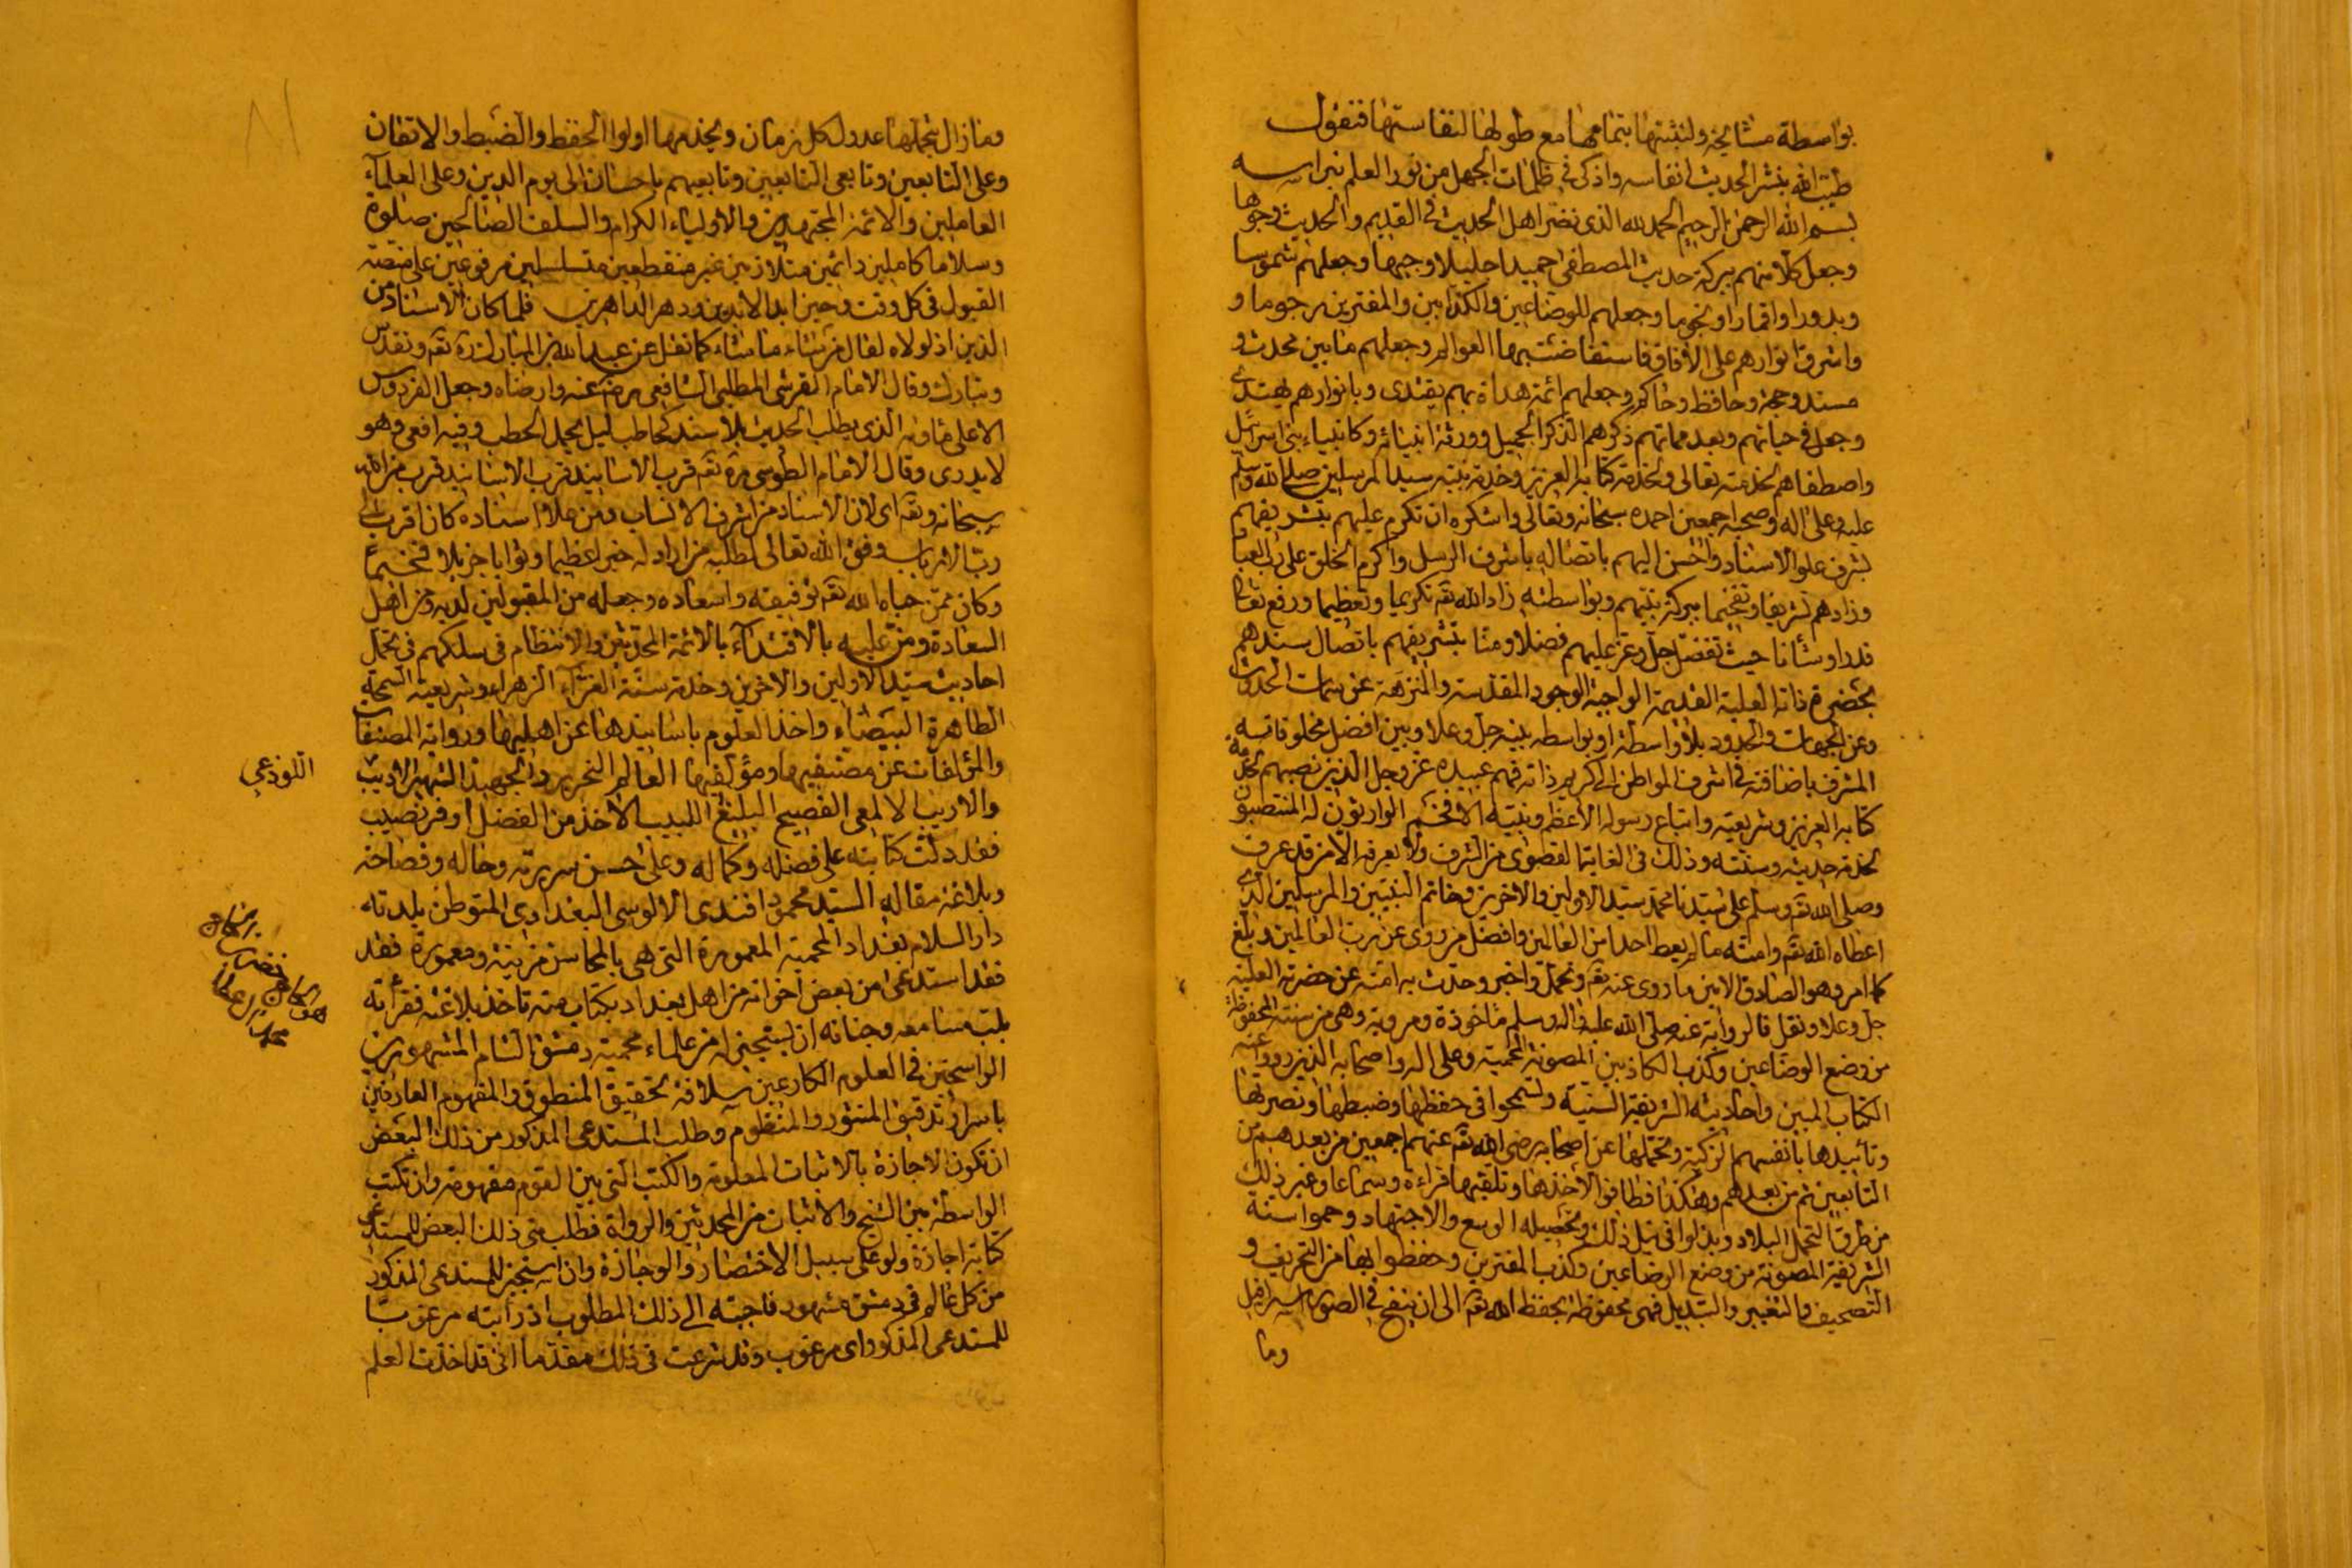 بواسطة مشايخه ولنثبتها بتمامها مع طولها لنفاستها فنقول
طيب الله بنشر الحديث انفاسه واذكى في ظلمات الجهل من نور العلم نبراسه
بسم الله الرحمن الرحيم الحمد لله الذي نضر اهل الحديث في القديم والحديث وجوها
وجعل كلا منهم ببركة حديث المصطفى حميدا جليلا وجيها وجعلهم شموسا
وبدورا واقمارا ونجوما وجعلهم للوضاعين والكذابين والمفترين رجوما و
واشرق انوارهم على الآفاق فاستضائت بها العوالم وجعلهم ما بين محدث و
مسند وحجة وحافظ وحاكم وجعلهم ائمة هداة بهم يقتدى وبانوارهم يهتدى
وجعل في حياتهم وبعد مماتهم ذكرهم الذكر الجميل وورثة انبيائه وكانبياء بني اسرائيل
واصطفاهم لخدمته تعالى ولخدمة كتابه العزيز وخدمة نبيه سيد المرسلين صلى الله وسلم
عليه وعلى اله وصحبه اجمعين احمده سبحانه وتعالى واشكره ان تكرم عليهم بتشريفهم
بشرف علو الاسناد واحسن اليهم باتصاله باشرف الرسل واكرم الخلق على رب العباد
وزادهم تشريفا وتفخيما ببركة نبيهم وبواسطته زاد الله تع تكريما وتعظيما ورفع تعالى
قدرا وشأنا حيث تفضل جل وعز عليهم فضلا ومنا بتشريفهم باتصال سندهم
بحضرة ذاته العلية القديمة الواجبة الوجود المقدسة والمنزهة عن سمات الحدوث
وعن الجهات والحدود بلا واسطة او بواسطه بينه جل وعلا وبين افضل مخلوقاته
المشرف باضافته في اشرف المواطن الى كريم ذاته فهم عبيده عز وجل الذين نصبهم لخدمة
كتابه العزيز وشريعته واتباع رسوله الاعظم ونبيه الافخم الوارثون له المنتصبون
لخدمة حديثه وسنته وذلك في الغاية القصوى من الشرف ولا يعرفه الا من قد عرف
وصلى الله تع وسلم على سيدنا محمد سيد الاولين والاخرين وخاتم النبيين والمرسلين الذي
اعطاه الله تع وامته ما لم يعط احدا من العالمين وافضل من روى عن رب العالمين وبلغ
كما امر وهو الصادق الامين ما روى عنه تع وتحمل واخبر وحدث به امته عن حضرته العلية
جل وعلا ونقل فالرواية عنه صلى الله عليه واله وسلم مأخوذة ومروية وهي من سنته المحفوظة
من وضع الوضاعين وكذب الكاذبين المصونة المحمية وعلى اله واصحابه الذين رووا عنه
الكتاب المبين واحاديثه الشريفة السنية وسمحوا في حفظها وضبطها ونصرتها
وتأييدها بانفسهم الزكية وتحملها عن اصحابه رضي الله تع عنهم اجمعين من بعدهم من
التابعين ثم من بعدهم وهكذا فطافوا لاخذها وتلقيها قراءة وسماعا وغير ذلك
من طرق التحمل البلاد وبذلوا في نيل ذلك وتحصيله الوسع والاجتهاد وحموا سنته
الشريفة المصونة من وضع الوضاعين وكذب المفترين وحفظوا لها من التحريف و
التصحيف والتغيير والتبديل فهي محفوظة بحفظ الله تع الى ان ينفخ في الصور اسرافيل
وما
وما زال يتحملها عدول كل زمان ويخدمها اولوا الحفظ والضبط والاتقان
وعلى التابعين وتابعي التابعين وتابعيهم باحسان الى يوم الدين وعلى العلماء
العاملين والائمة المجتهدين والاولياء الكرام والسلف الصالحين صلوة
وسلاما كاملين دائمين متلازمين غير منقطعين متسلسلين مرفوعين على منصة
القبول في كل وقت وحين ابد الابدين ودهر الداهرين فلما كان الاسناد من
الدين اذ لولاه لقال من شاء ما شاء كما نقل عن عبد الله بن المبارك تع وتقدس
وتبارك وقال الامام القرشي المطلبي الشافعي رضي عنه وارضاه وجعل الفردوس
الاعلى مأواه الذي يطلب الحديث بلا سند كحاطب ليل يحمل الحطب وفيه افعى وهو
لا يدري وقال الامام الطوسي تع قرب الاسانيد قرب من الله
سبحانه وتع اي لان الاسناد من اشرف الانساب فمن علا اسناده كان اقرب الى
رب الارباب وفق الله تعالى لطلبه من اراد له خيرا عظيما وثوابا جزيلا فخيما
وكان ممن حباه الله تع توفيقه واسعاده وجعله من المقبولين لديه ومن اهل
السعادة ومن عليه بالاقتداء بالائمة المحدثين والانتظام في سلكهم في تحمل
احاديث سيد الاولين والاخرين وخدمة سنته الغراء الزهراء وشريعته السمحة
الطاهرة البيضاء واخذ العلوم باسانيدها عن اهليها ورواته المصنفات
والمؤلفات عن مصنفيها ومؤلفيها العالم النحرير والجهبذ الشهير الاديب
اللوذعي
والاريب الالمعي الفصيح البليغ اللبيب الآخذ من الفضل اوفر نصيب
فقد دلت كتابته على فضله وكماله وعلى حسن سريرته وحاله وفصاحته
وبلاغة مقاله السيد محمود افندي الالوسي البغدادي المتوطن بلدته
دار السلام بغداد المحمية المعمورة التي هي بالمحاسن مزينة ومعمورة فقد
فقد استدعى من بعض اخوانه من اهل بغداد بكتاب منه تاخذ بلاغته فقرأته
مسامعه وجنانه ان يستجيز له من علماء محمية دمشق الشام المشهورين
الراسخين في العلوم الكارعين سلافة تحقيق المنطوق والمفهوم العارفين
باسرار تدقيق المنثور والمنظوم وطلب المستدعي المذكور من ذلك البعض
ان تكون الاجازة بالاثبات المعلومة والكتب التي بين القوم مفهومة وان تكتب
الواسطة بين الشيخ والاثبات من المحدثين والرواة فطلب مني ذلك البعض للمستدعي
كتابة اجازة ولو على سبيل الاختصار والوجازة وان استجيز للمستدعي المذكور
من كل عالم في دمشق مشهور فاجبته الى ذلك المطلوب اذ رأيته مرغوبا
للمستدعي المذكور اي مرغوب وقد شرعت في ذلك مقدما اني قد اخذت العلم